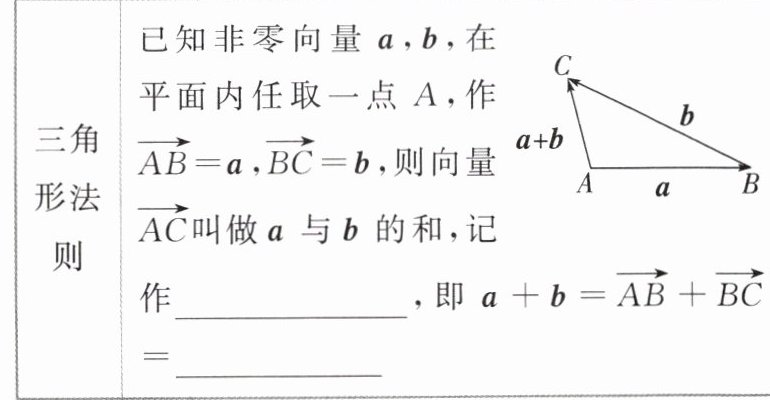 三角
形法
则
已知非零向量 a,b,在
平面内任取一点 A,作
AB=a,BC=b,则向量
AC叫做 a 与 b 的和,记
作__________,即 a + b = AB + BC
=__________
C
b
a+b
A
a
B